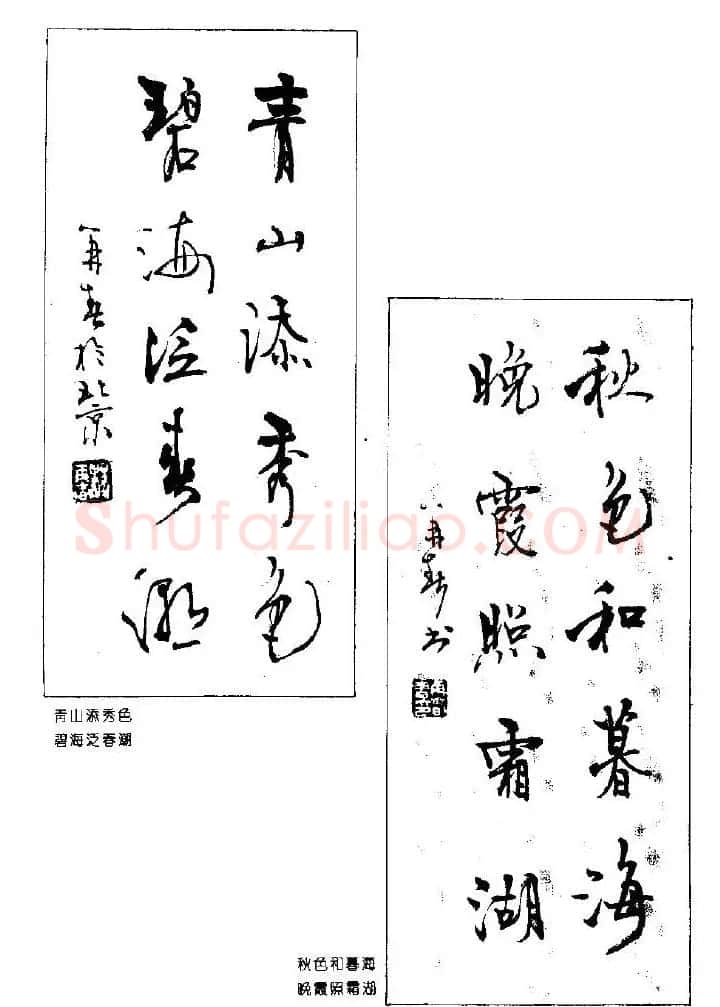 青山添秀色
碧海泛春潮
苒春於北京
青山添秀色
碧海泛春潮
秋色和暮海
晚霞照霜湖
苒春书
秋色和暮海
晚霞照霜湖
Shufaziliao.COM